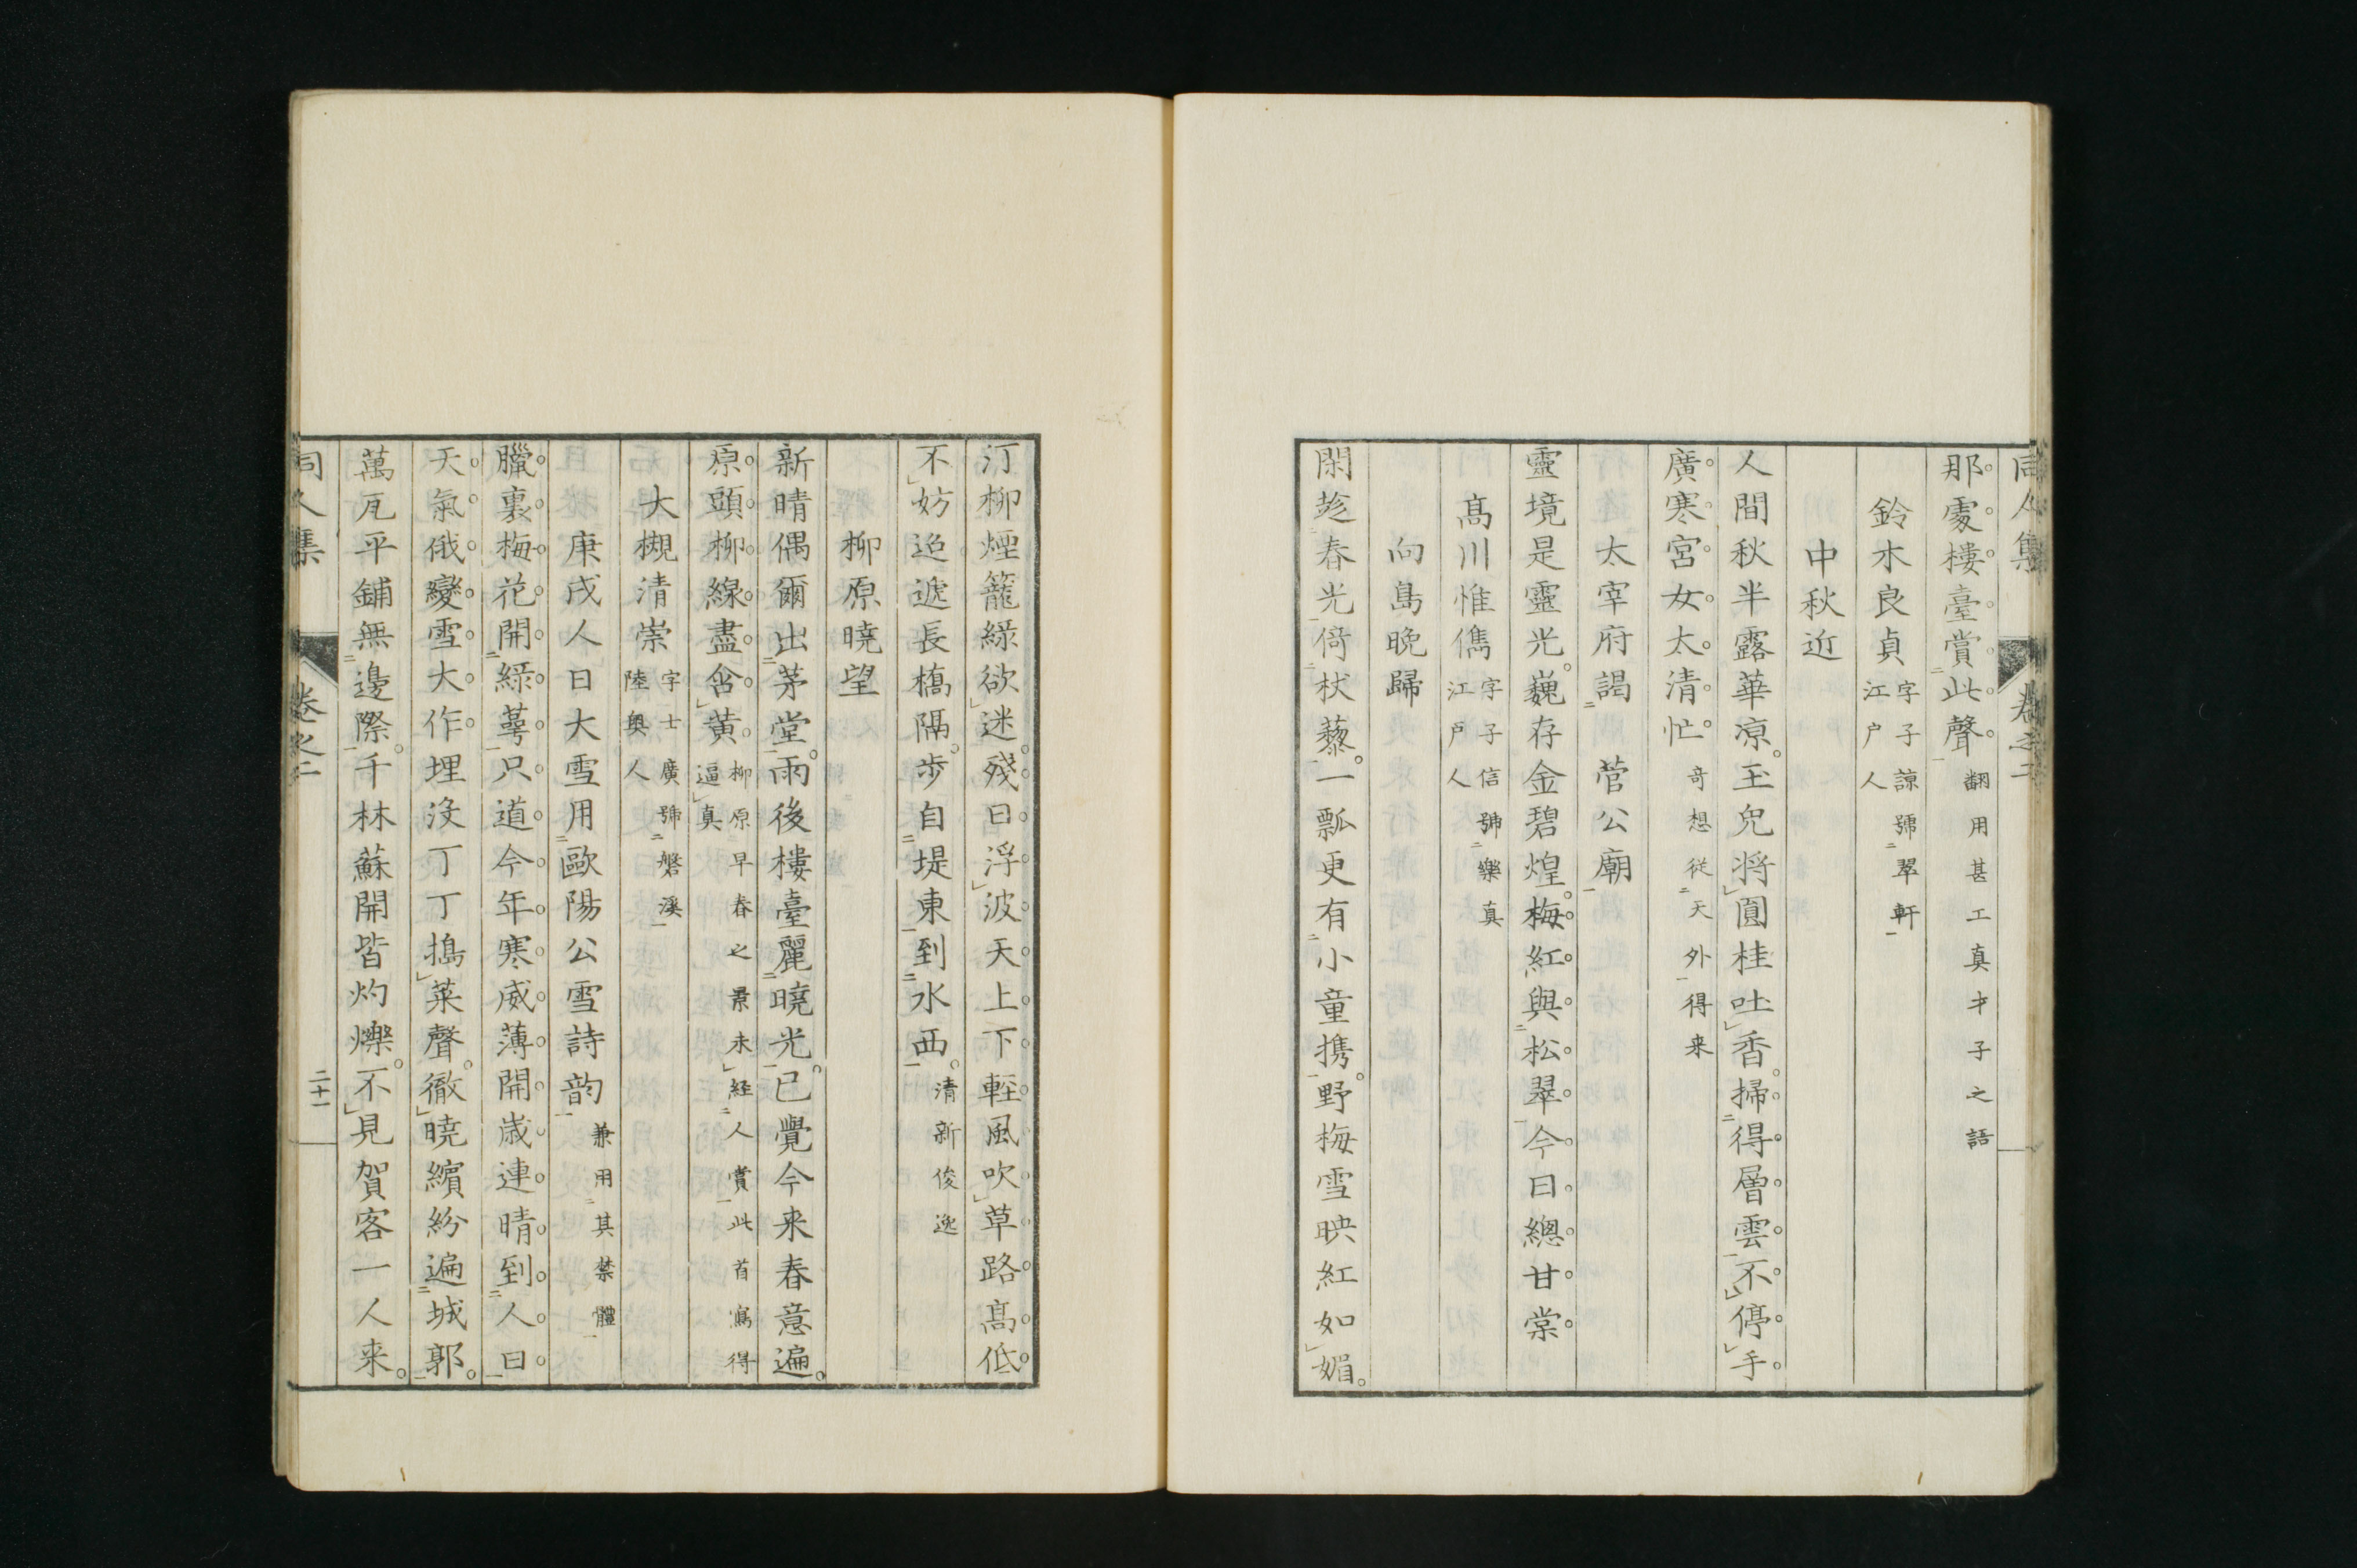 同人集 卷之二
那處樓臺賞此聲 翻用甚工真才子之語
鈴木良貞 字子諒號翠軒 江戸人
中秋近
人間秋半露華凉玉兔將圓桂吐香掃得層雲不停手
廣寒宮女太清忙 奇想從天外得来
太宰府謁 菅公廟
靈境是靈光巍存金碧煌梅紅與松翠今日總甘棠
髙川惟儁 字子信號樂真 江戸人
向島晩歸
閑趁春光倚杖藜一瓢更有小童携野梅雪映紅如媚
汀柳煙籠緑欲迷殘日浮波天上下輕風吹草路髙低
不妨迢遞長橋隔歩自堤東到水西 清新俊逸
柳原曉望
新晴偶爾出茅堂雨後樓臺麗曉光已覺今来春意遍
原頭柳線盡含黄 柳原早春之景未経人賞此首寫得逼真
大槻清崇 字士廣號磐溪 陸奥人
庚戌人日大雪用歐陽公雪詩韵 兼用其禁體
臘裏梅花開緑萼只道今年寒威薄開歳連晴到人日
天氣俄變雪大作埋没丁丁搗菜聲徹曉繽紛遍城郭
萬瓦平鋪無邊際千林蘇開皆灼爍不見賀客一人来
同人集 卷之二 二十一